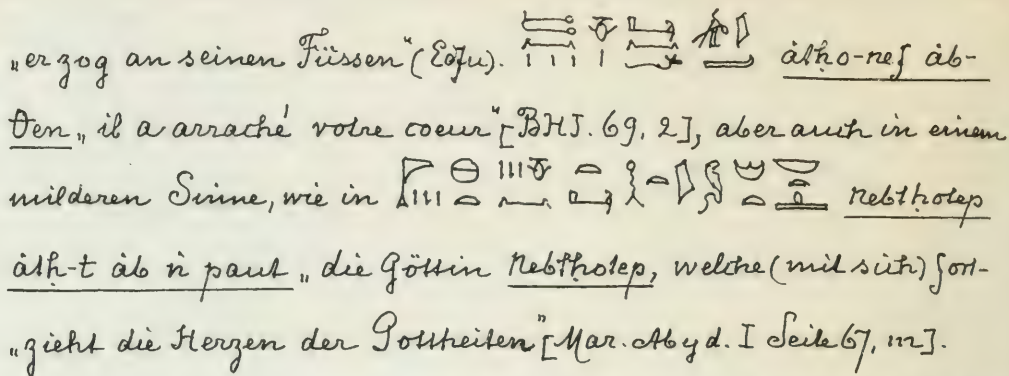 „er zog an seinen Füssen“ (Edfu). åtḥo-nef åb-
ten „il a arraché votre coeur“ [BHJ. 69, 2], aber auch in einem
milderen Sinne, wie in Nebtḥotep
åtḥ-t åb ṅ paut „die Göttin Nebtḥotep, welche (mit sich) fort-
„zieht die Herzen der Gottheiten“ [Mar. Abyd. I Seite 67, m].